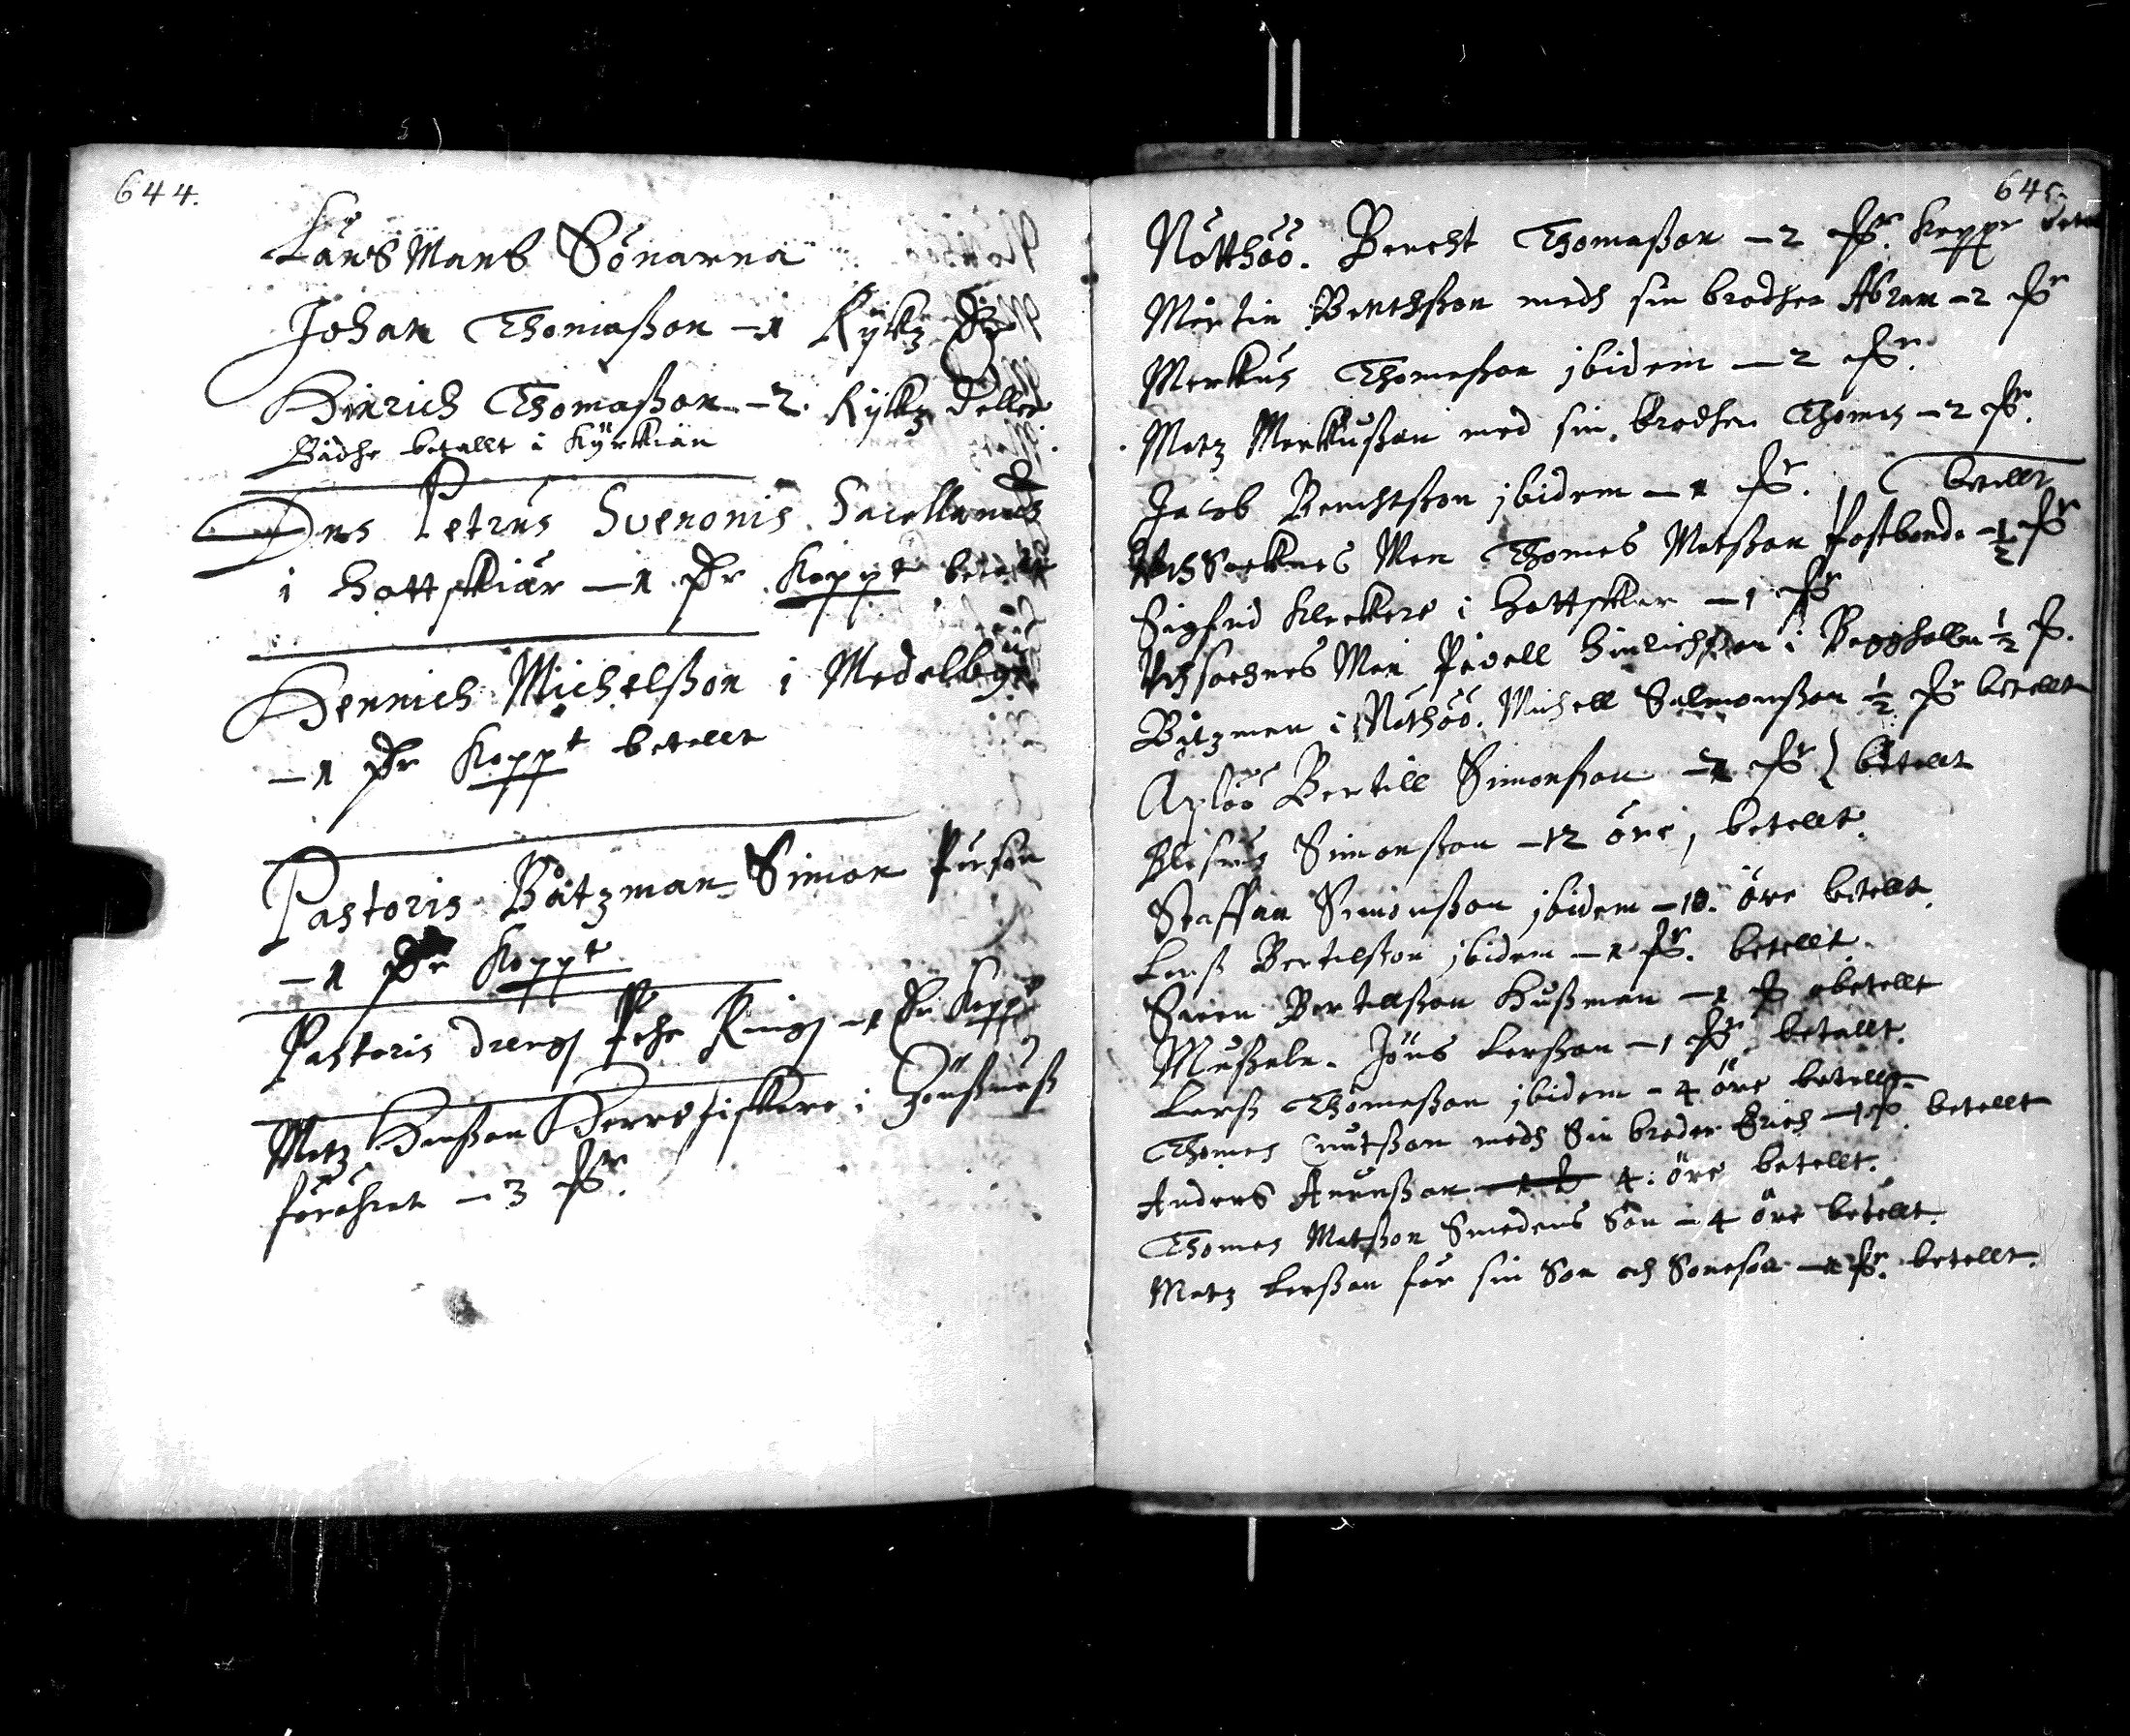 644.
Länsmans Sönarna
Johan Thomaßon – 1 Rykz Dr
Hinrich Thomaßon – 2. Rykz daller
Bådhe betallt i Kyrkian
Dns Petrus Svenonis Sacellanus
i Hattskiär – 1 Dr Koppt betalt
Hennich Michelßon i Medelby
– 1 Dr Koppt betallt
Pastoris Båtzman Simon Person
– 1 Dr Koppt
Pastoris dreng Pehr King – 1 Dr Koppt
Matz Hanßon Herrefiskare i
förährat – 3 Dr.
645.
Nötthöö. Bencht Thomaßon – 2 Dr. Koppr betal
Mårtin Benthßon medh sin brodher Abram – 2 Dr
Markus Thomaßon ibidem – 2 Dr.
Matz Markußon med sin brodher Thomas – 2 Dr.
Jacob Benchtßon ibidem – 1 Dr. betallt
Vthsocknes Man Thomas Matßon Postbonde – 1/2 Dr
Sigfrid Klockare i Hattskär – 1 Dr
Vthsochnes Man Påvell Hinrichßon i Berghollm 1/2 Dr.
Båtzman i Nöthöö. Michell Salmonßon 1/2 Dr betallt
Aplöö Bertill Simonßon – 1 Dr betallt
Blasius Simonßon – 12 öre, betallt.
Staffan Simonßon ibidem – 10. öre betallt.
Larß Bertilßon ibidem – 1 Dr. betallt.
Bertillßon Hußman – 1 Dr betallt
Mußala. Jöns Larßon – 1 Dr betallt.
Larß Thomaßon ibidem – 4 öre betallt.
Thomas Cnutßon medh Sin broder Erich – 1 Dr. betallt
Anders 4. öre betallt.
Thomas Matßon Smedens Son – 4 öre betallt.
Matz Larßon för sin Son och Soneson – 1 Dr. betallt.